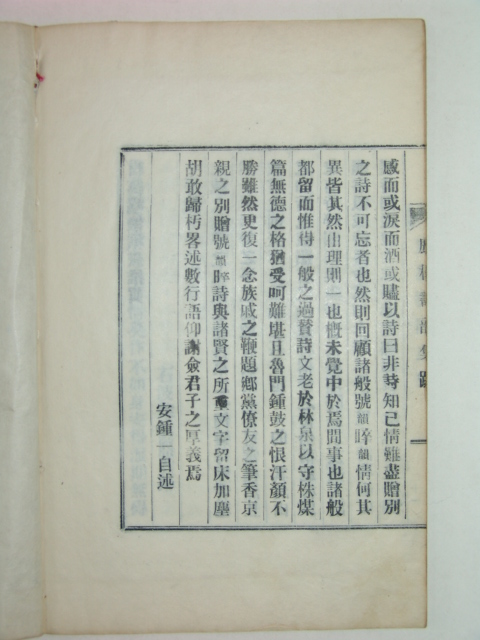 感而或淚而酒或贐以詩曰非詩知己情難盡贈別
之詩不可忘者也然則回顧諸般號韻晬韻情何其
異皆其然由理則一也慨未覺中於焉間事也諸般
都留而惟侍一般之過賛詩文老於林泉以守株煤
篇無德之格猶受呵難堪且魯門鍾鼓之恨汗顏不
勝雖然更復一念族戚之鞭題鄕黨僚友之筆香京
親之別贈號韻晬詩與諸賢之所重文字留床加塵
胡敢歸朽畧述數行語仰謝僉君子之厚義焉
安鍾一自述